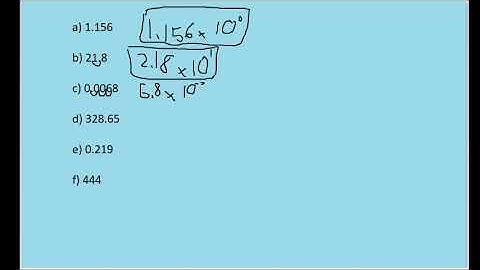 a) 1.156 1.156 × 10⁰
b) 21.8 2.18 × 10¹
c) 0.0068 6.8 × 10
d) 328.65
e) 0.219
f) 444